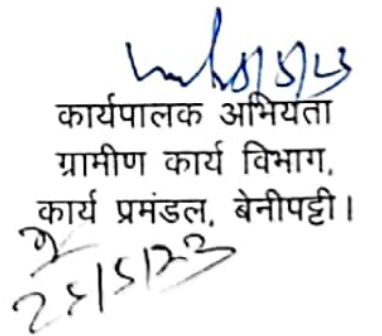 कार्यपालक अभियंता
ग्रामीण कार्य विभाग,
कार्य प्रमंडल, बेनीपट्टी।
25/5/23